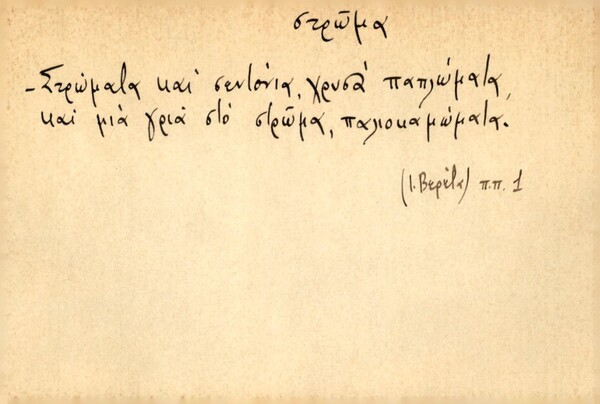 στρῶμα
-Στρώματα καὶ σεντόνια, χρυσᾶ παπλώματα,
καὶ μιὰ γριὰ στὸ στρῶμα, παλιοκαμώματα.
(Ι. Βερέτα) π.π. 1